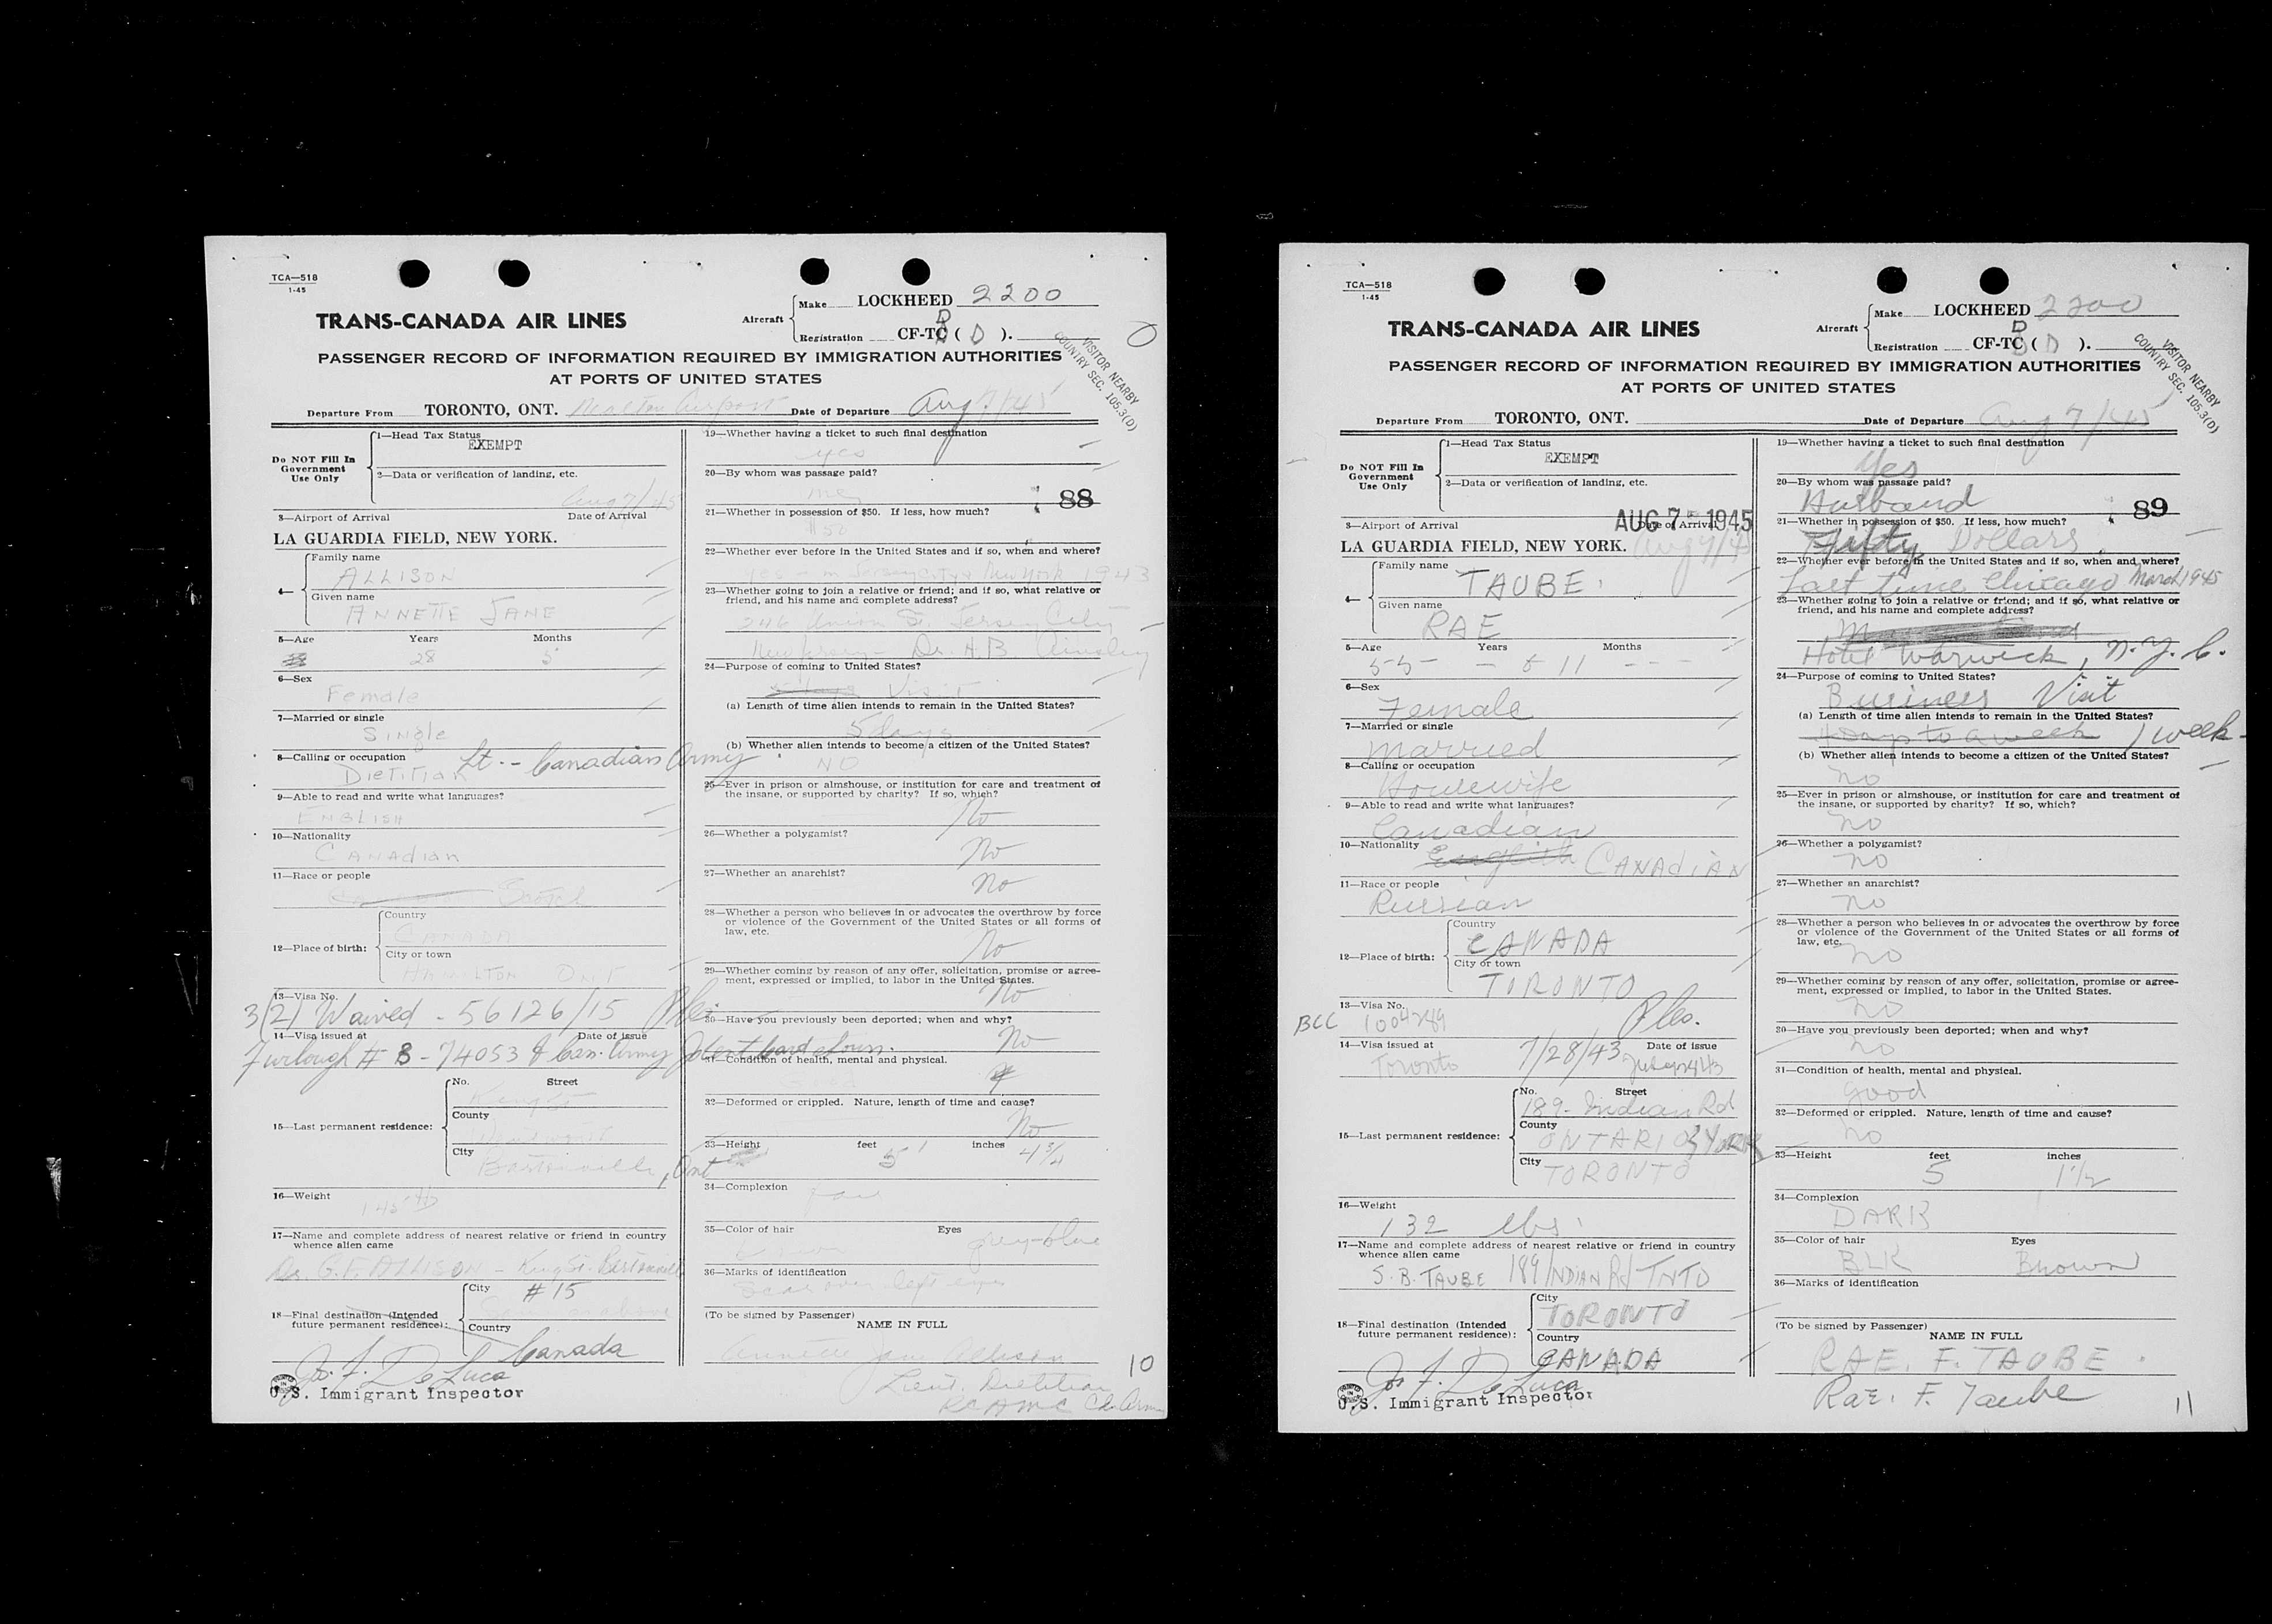 TCA—518
1-45
TRANS-CANADA AIR LINES
Aircraft
Make LOCKHEED 2200
Registration CF-TC ( D ).
B
PASSENGER RECORD OF INFORMATION REQUIRED BY IMMIGRATION AUTHORITIES
AT PORTS OF UNITED STATES
VISITOR NEARBY
COUNTRY SEC. 105.3(D)
Departure From TORONTO, ONT. Malton Airport Date of Departure Aug. 7/45
Do NOT Fill In
Government
Use Only
1—Head Tax Status
EXEMPT
2—Data or verification of landing, etc.
Aug 7/45
3—Airport of Arrival Date of Arrival
LA GUARDIA FIELD, NEW YORK.
4—
Family name
ALLISON
Given name
ANNETTE JANE
5—Age Years Months
28 5
6—Sex
Female
7—Married or single
Single
8—Calling or occupation Lt. - Canadian Army
Dietitian
9—Able to read and write what languages?
ENGLISH
10—Nationality
CANADIAN
11—Race or people
Scotch
12—Place of birth:
Country
CANADA
City or town
HAMILTON ONT
13—Visa No.
3(2) Waived - 56126/15
14—Visa issued at Date of issue
Furlough # B-74053 & Can. Army Ident card shown.
15—Last permanent residence:
No. Street
King St
County
Wentworth
City
Bartonville, Ont
16—Weight
145 lb
17—Name and complete address of nearest relative or friend in country
whence alien came
Dr. G.F. ALLISON - King St. Bartonville
18—Final destination (Intended
future permanent residence):
City # 15
Same as above
Country
Canada
Jos. F. De Luca
U.S. Immigrant Inspector
19—Whether having a ticket to such final destination
yes
20—By whom was passage paid?
me
88
21—Whether in possession of $50. If less, how much?
$50
22—Whether ever before in the United States and if so, when and where?
yes - in Jersey City & New York 1943
23—Whether going to join a relative or friend; and if so, what relative or
friend, and his name and complete address?
246 Union St. Jersey City
New Jersey - Dr. H.B. Ainsley
24—Purpose of coming to United States?
Visit
(a) Length of time alien intends to remain in the United States?
5 days
(b) Whether alien intends to become a citizen of the United States?
NO
25—Ever in prison or almshouse, or institution for care and treatment of
the insane, or supported by charity? If so, which?
No
26—Whether a polygamist?
No
27—Whether an anarchist?
No
28—Whether a person who believes in or advocates the overthrow by force
or violence of the Government of the United States or all forms of
law, etc.
No
29—Whether coming by reason of any offer, solicitation, promise or agree-
ment, expressed or implied, to labor in the United States.
No
30—Have you previously been deported; when and why?
No
31—Condition of health, mental and physical.
Good
32—Deformed or crippled. Nature, length of time and cause?
No
33—Height feet inches
5' 4 3/4
34—Complexion
fair
35—Color of hair Eyes
brown grey-blue
36—Marks of identification
Scar over left eye
(To be signed by Passenger)
NAME IN FULL
Annette Jane Allison
Lieut. Dietitian
RCAMC Cdn. Army
10
TCA—518
1-45
TRANS-CANADA AIR LINES
Aircraft
Make LOCKHEED 2200
Registration CF-TC ( D ).
B
PASSENGER RECORD OF INFORMATION REQUIRED BY IMMIGRATION AUTHORITIES
AT PORTS OF UNITED STATES
VISITOR NEARBY
COUNTRY SEC. 105.3(D)
Departure From TORONTO, ONT. Date of Departure Aug 7/45
Do NOT Fill In
Government
Use Only
1—Head Tax Status
EXEMPT
2—Data or verification of landing, etc.
AUG 7 - 1945
3—Airport of Arrival Date of Arrival
LA GUARDIA FIELD, NEW YORK. Aug 7/45
4—
Family name
TAUBE
Given name
RAE
5—Age Years Months
55 - 11 ---
6—Sex
Female
7—Married or single
Married
8—Calling or occupation
Housewife
9—Able to read and write what languages?
Canadian
10—Nationality English CANADIAN
11—Race or people
Russian
12—Place of birth:
Country
CANADA
City or town
TORONTO
13—Visa No.
BCC 1004289
14—Visa issued at 7/28/43 Date of issue
Toronto
15—Last permanent residence:
No. Street
189 - Indian Rd
County
ONTARIO YORK
City
TORONTO
16—Weight
132 lbs.
17—Name and complete address of nearest relative or friend in country
whence alien came
S.B. TAUBE 189 INDIAN Rd TNTO
18—Final destination (Intended
future permanent residence):
City
TORONTO
Country
CANADA
Jos. F. De Luca
U.S. Immigrant Inspector
19—Whether having a ticket to such final destination
Yes
20—By whom was passage paid?
Husband
89
21—Whether in possession of $50. If less, how much?
Fifty Dollars.
22—Whether ever before in the United States and if so, when and where?
Last time Chicago March 1945
23—Whether going to join a relative or friend; and if so, what relative or
friend, and his name and complete address?
Hotel Warwick, N.Y.C.
24—Purpose of coming to United States?
Business Visit
(a) Length of time alien intends to remain in the United States?
4 Days to a week 1 week
(b) Whether alien intends to become a citizen of the United States?
no
25—Ever in prison or almshouse, or institution for care and treatment of
the insane, or supported by charity? If so, which?
no
26—Whether a polygamist?
no
27—Whether an anarchist?
no
28—Whether a person who believes in or advocates the overthrow by force
or violence of the Government of the United States or all forms of
law, etc.
no
29—Whether coming by reason of any offer, solicitation, promise or agree-
ment, expressed or implied, to labor in the United States.
no
30—Have you previously been deported; when and why?
no
31—Condition of health, mental and physical.
good
32—Deformed or crippled. Nature, length of time and cause?
no
33—Height feet inches
5 1 1/2
34—Complexion
DARK
35—Color of hair Eyes
BLK Brown
36—Marks of identification
(To be signed by Passenger)
NAME IN FULL
RAE. F. TAUBE.
Rae. F. Taube
11